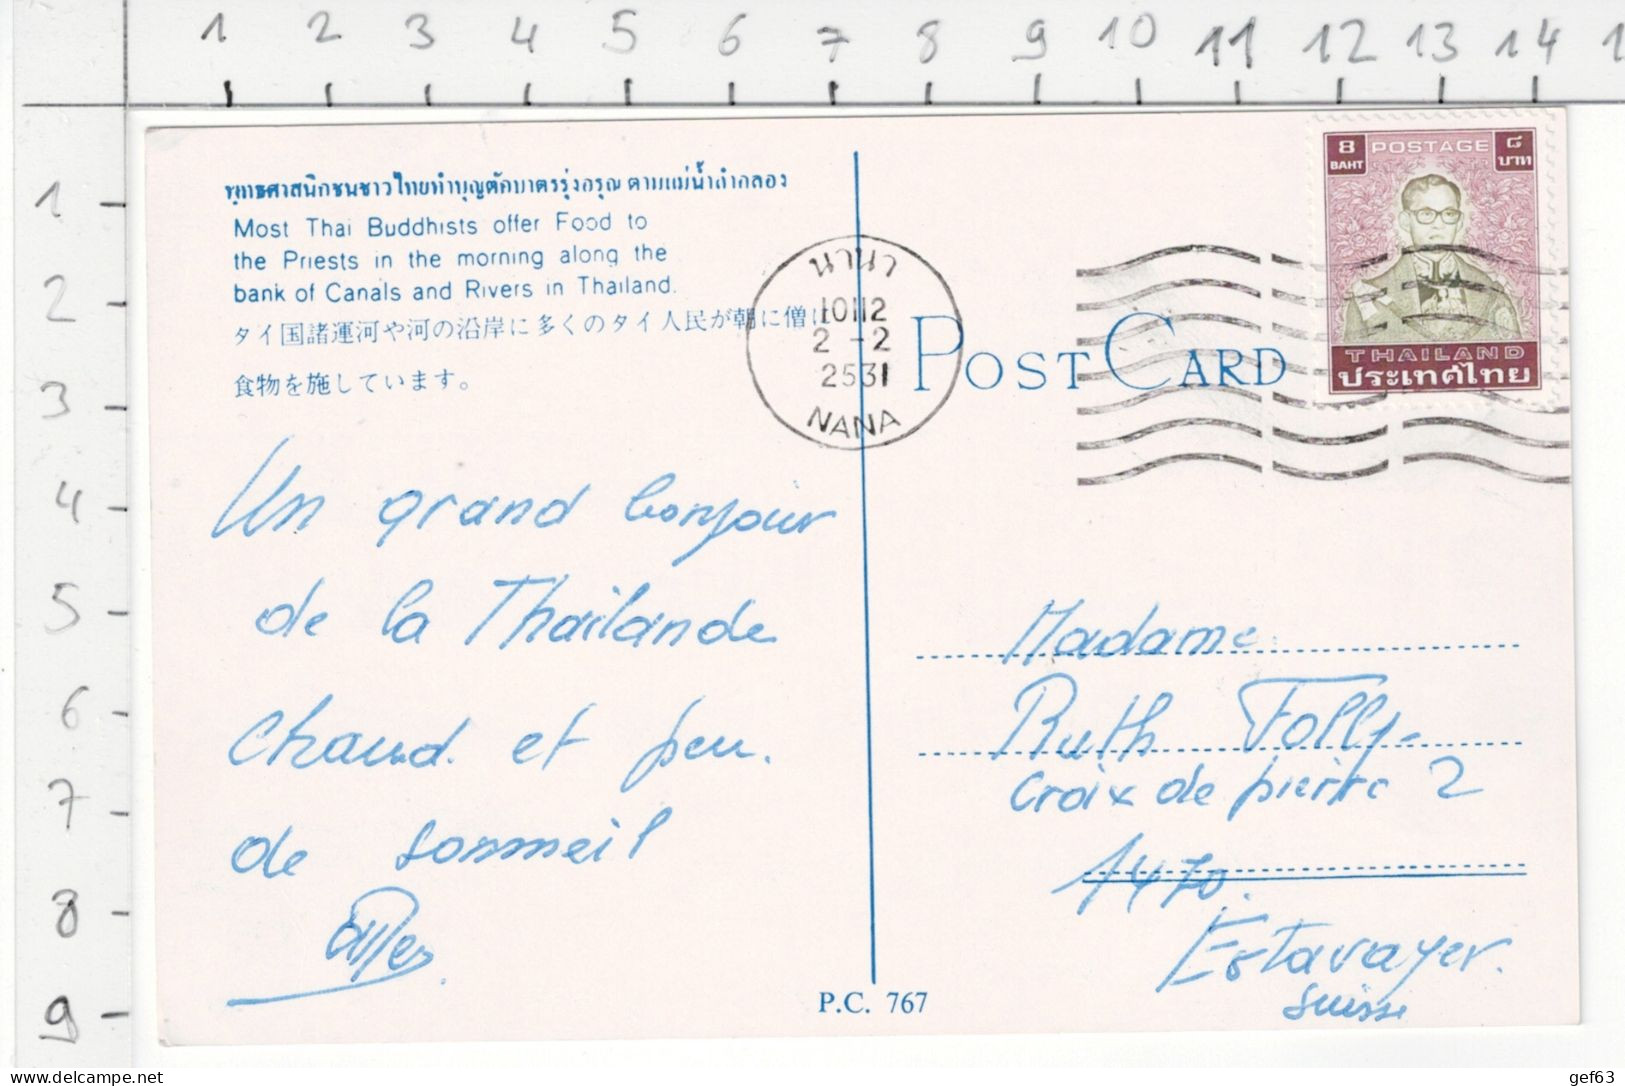 1 2 3 4 5 6 7 8 9 10 11 12 13 14 1
1
2
3
4
5
6
7
8
9
พุทธศาสนิกชนชาวไทยทำบุญตักบาตรรุ่งอรุณ ตามแม่น้ำลำคลอง
Most Thai Buddhists offer Food to
the Priests in the morning along the
bank of Canals and Rivers in Thailand.
タイ国諸運河や河の沿岸に多くのタイ人民が朝に僧に
食物を施しています。
Un grand bonjour
de la Thailande
chaud. et peu.
de sommeil
P.C. 767
นานา
10112
2 -2
2531
NANA
POST CARD
8 POSTAGE ๘
BAHT บาท
THAILAND
ประเทศไทย
Madame
Ruth Folly-
Croix de pierre 2
1470.
Estavayer.
Suisse
delcampe.net
gef63